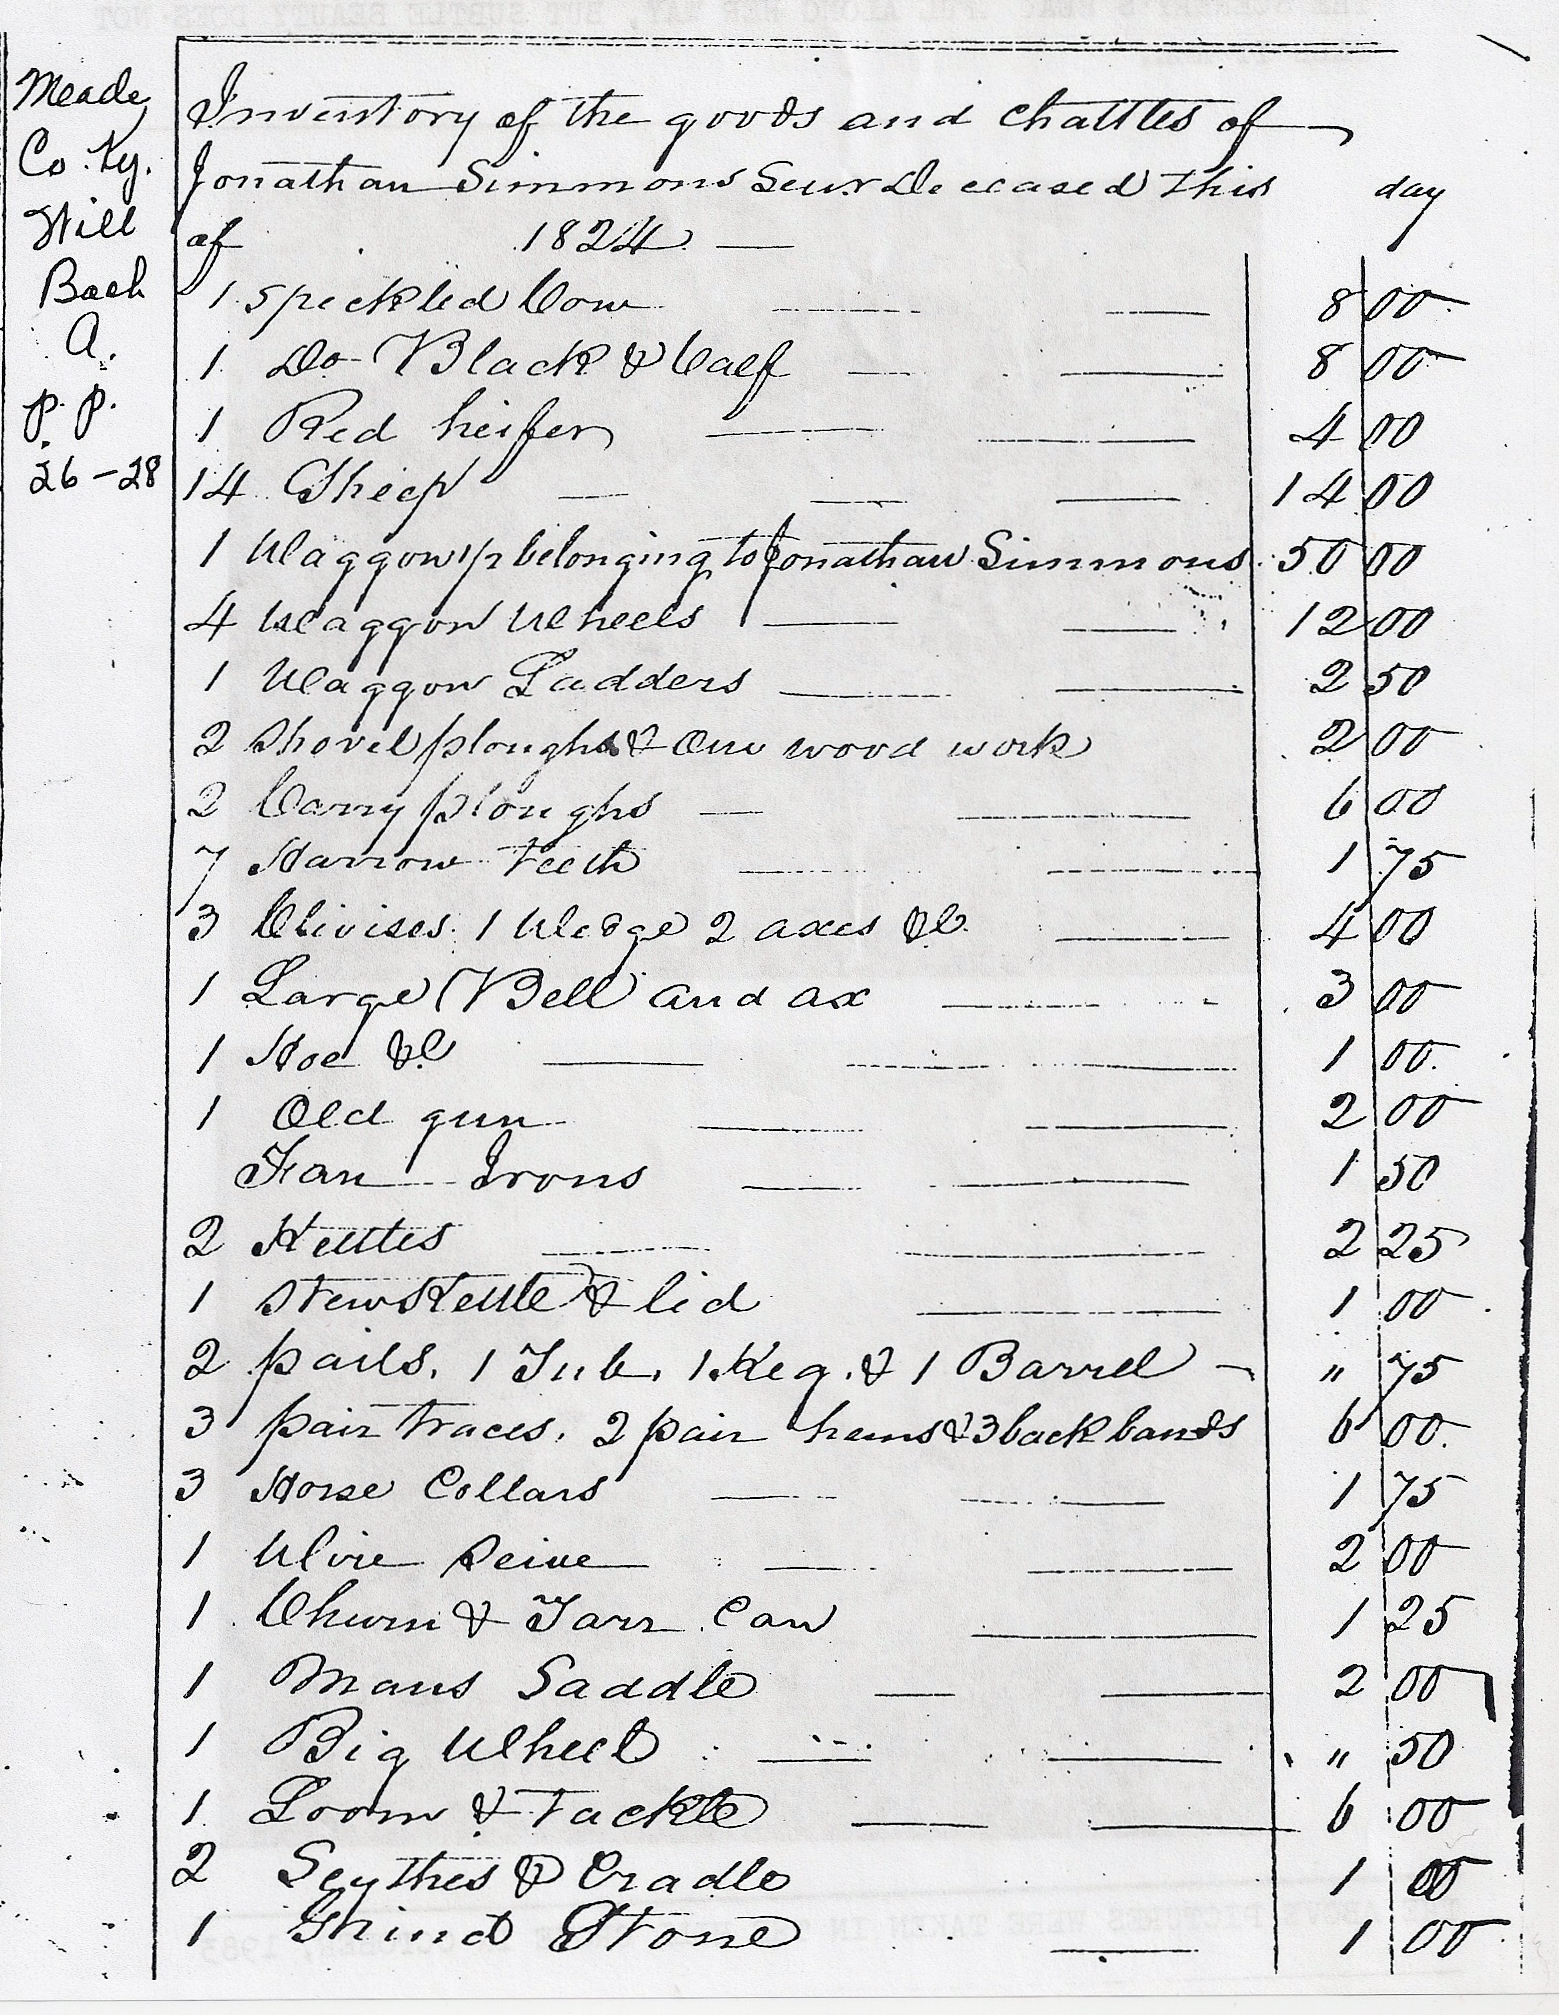 Meade
Co. Ky.
Will
Book
A.
P. P.
26-28
Inventory of the goods and chattles of
Jonathan Simmons Senr Deceased this day
of 1824
1 speckled Cow 8 00
1 Do Black & Calf 8 00
1 Red heifer 4 00
14 Sheep 14 00
1 Waggon belonging to Jonathan Simmons 50 00
4 Waggon Wheels 12 00
1 Waggon Ladders 2 50
2 Shovel ploughs & One wood work 2 00
2 Carry ploughs 6 00
7 Harrow teeth 1 75
3 Clivises. 1 Wedge 2 axes &C 4 00
1 Large Bell and ax 3 00
1 Hoe &C 1 00
1 Old gun 2 00
Fan Irons 1 50
2 Kettles 2 25
1 Stew Kettle & lid 1 00
2 pails. 1 Tub. 1 Keg. & 1 Barrel " 75
3 pair traces. 2 pair hems & 3 back bands 6 00
3 Horse Collars 1 75
1 Wire Seive 2 00
1 Churn & Tarr Can 1 25
1 Mans Saddle 2 00
1 Big Wheel " 50
1 Loom & Tackle 6 00
2 Scythes & Cradle 1 00
1 Grind Stone 1 00